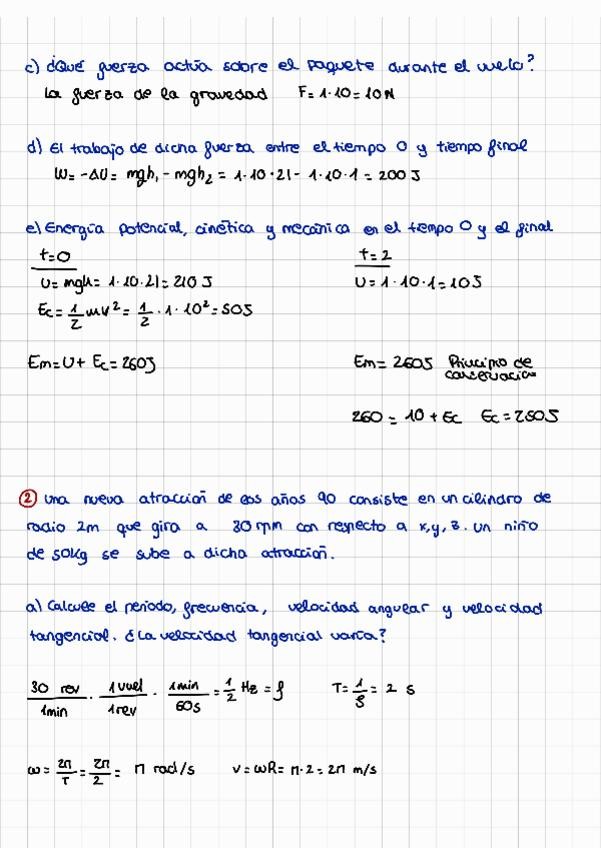 c) ¿Qué fuerza actúa sobre el paquete durante el vuelo?
La fuerza de la gravedad F = 1·10 = 10N
d) El trabajo de dicha fuerza entre el tiempo 0 y tiempo final
W = -ΔU = mgh₁ - mgh₂ = 1·10·21 - 1·10·1 = 200J
e) Energía potencial, cinética y mecánica en el tiempo 0 y el final
t=0 t=2
U = mgh = 1·10·21 = 210J U = 1·10·1 = 10J
Ec = 1/2 mv² = 1/2 · 1 · 10² = 50J
Em = U + Ec = 260J Em = 260J Principio de conservación
260 = 10 + Ec Ec = 250J
② Una nueva atracción de los años 90 consiste en un cilindro de
radio 2m que gira a 30 rpm con respecto a x,y,z. Un niño
de 50Kg se sube a dicha atracción.
a) Calcule el periodo, frecuencia, velocidad angular y velocidad
tangencial. ¿La velocidad tangencial varía?
30 rev/1min · 1vuel/1rev · 1min/60s = 1/2 Hz = f T = 1/f = 2 s
ω = 2π/T = 2π/2 = π rad/s v = ωR = π·2 = 2π m/s